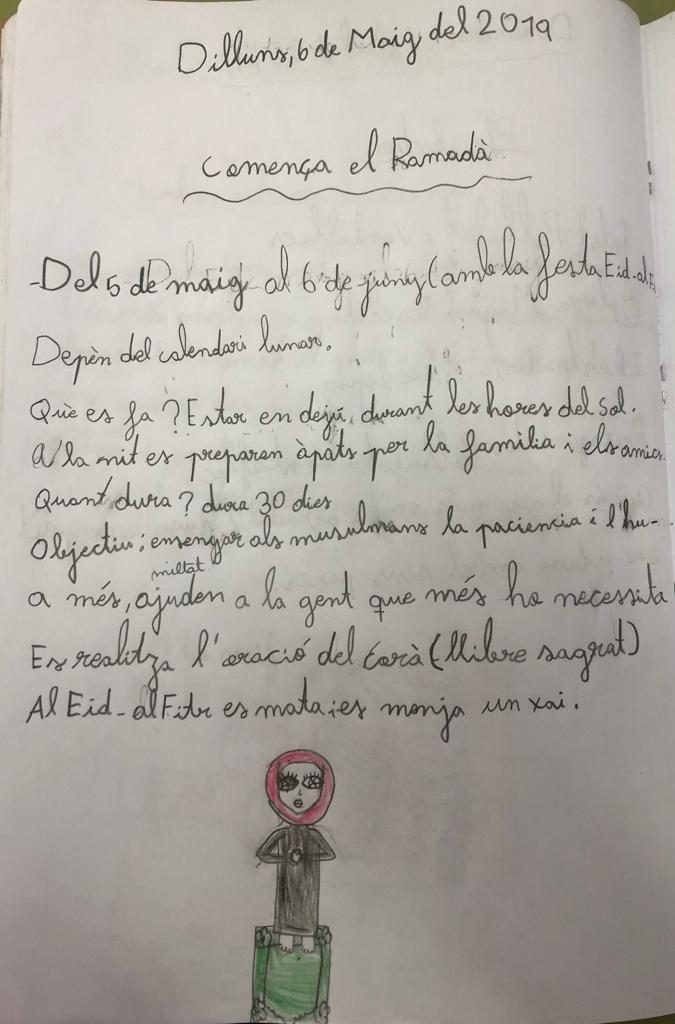 Dilluns, 6 de Maig del 2019
Comença el Ramadà
-Del 5 de maig al 6 de juny (amb la festa Eid-al F
Depèn del calendari lunar.
Què es fa? Estar en dejú, durant les hores del sol.
A la nit es preparen àpats per la família i els amics.
Quant dura? dura 30 dies
Objectiu: ensenyar als musulmans la paciencia i l'hu-
miltat.
a més, ajuden a la gent que més ho necessita
Es realitza l'oració del Corà (llibre sagrat)
Al Eid-al Fitr es mata i es menja un xai.